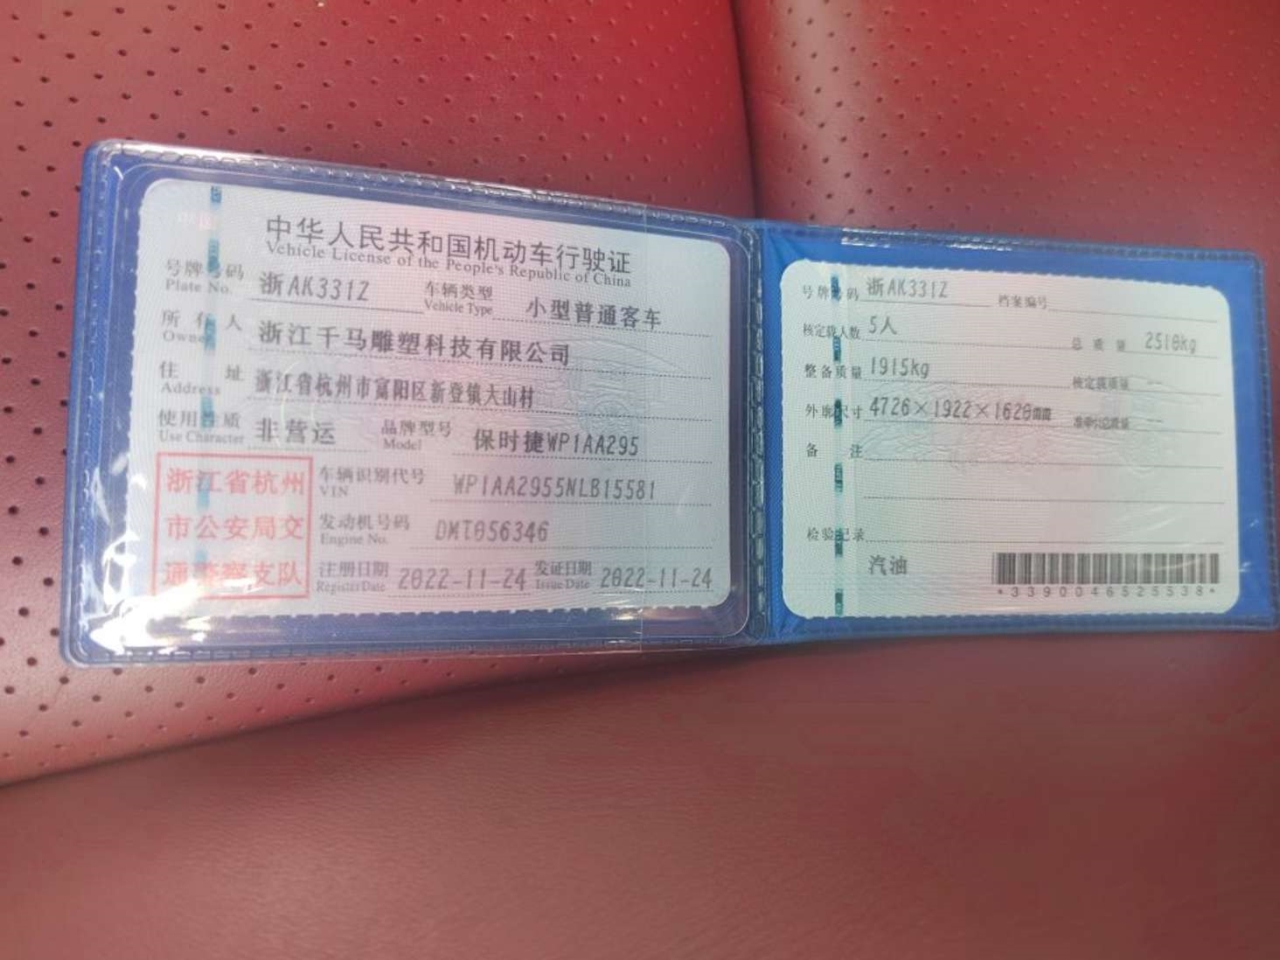 中华人民共和国机动车行驶证
Vehicle License of the People's Republic of China
号牌号码 浙AK331Z 车辆类型 小型普通客车
Plate No. Vehicle Type
所有人 浙江千马雕塑科技有限公司
Owner
住址 浙江省杭州市富阳区新登镇大山村
Address
使用性质 非营运 品牌型号 保时捷WP1AA295
Use Character Model
浙江省杭州
市公安局交
通警察支队
车辆识别代号 WP1AA2955NLB15581
VIN
发动机号码 DMT056346
Engine No.
注册日期 2022-11-24 发证日期 2022-11-24
Register Date Issue Date
号牌号码 浙AK331Z 档案编号
核定载人数 5人 总质量 2510kg
整备质量 1915kg 核定载质量 --
外廓尺寸 4726×1922×1620mm 准牵引总质量 --
备注
检验记录
汽油
*3390046525538*